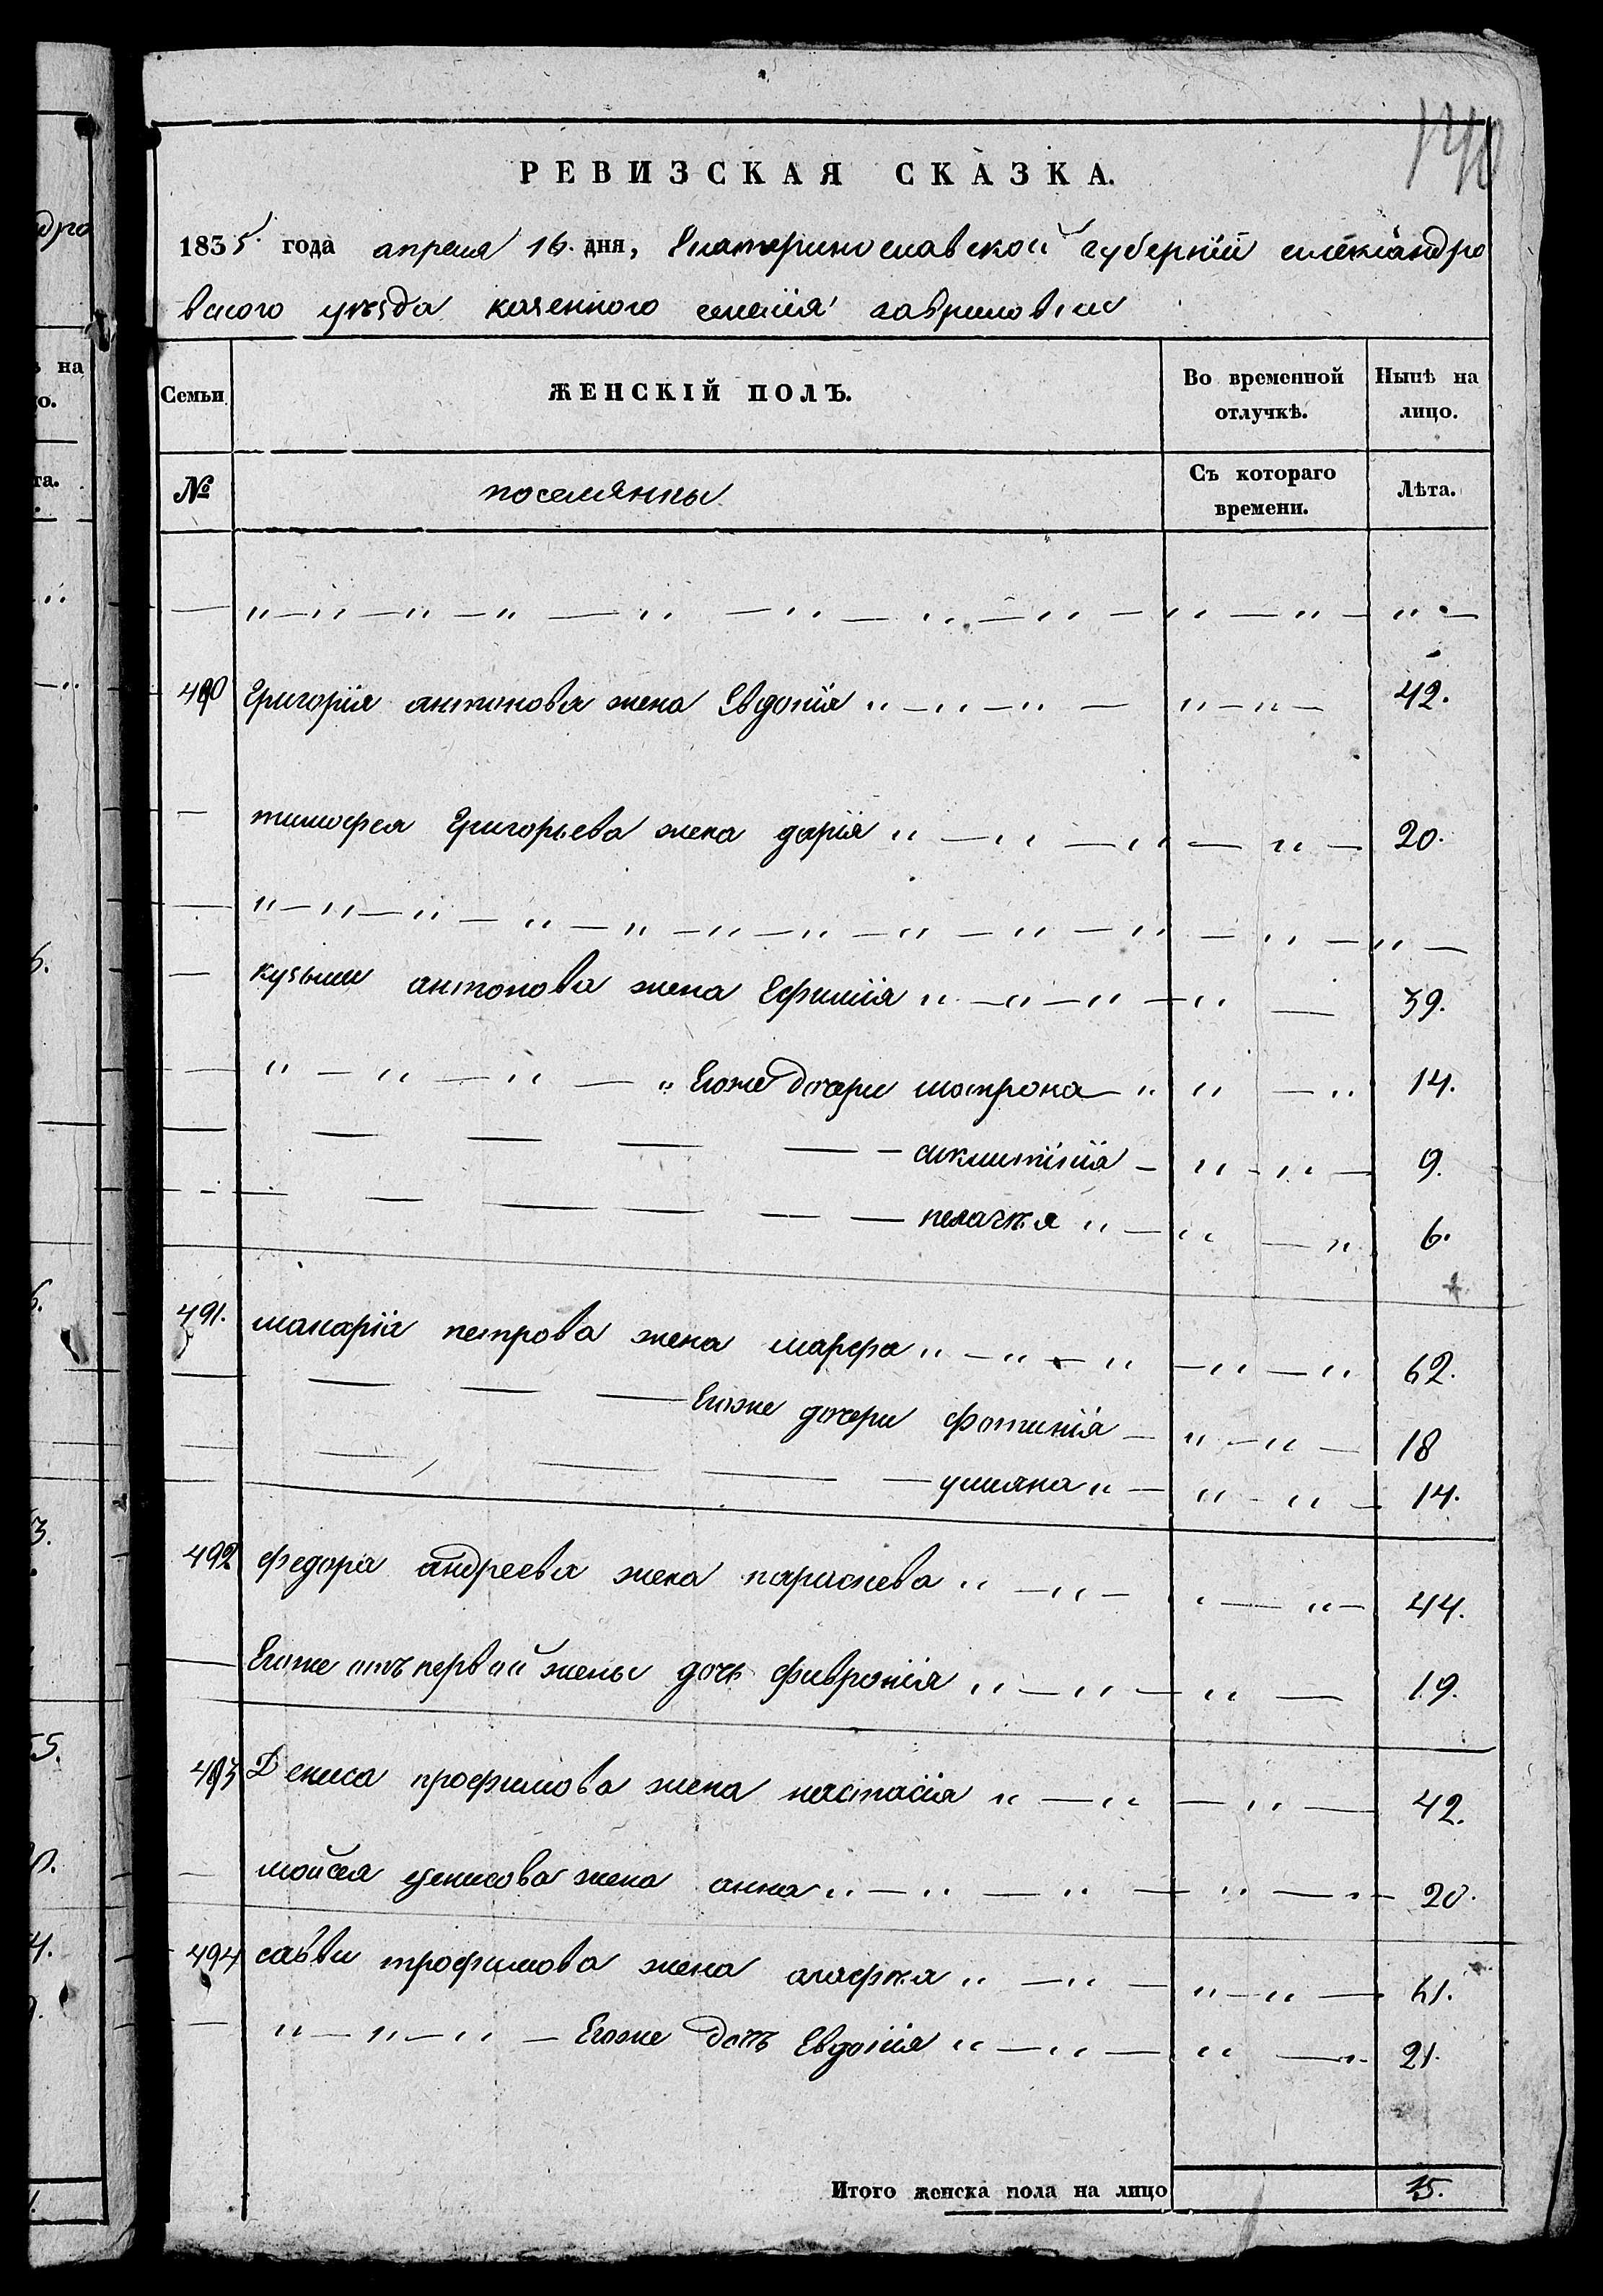 140
РЕВИЗСКАЯ СКАЗКА.
1835. года апреля 16. дня, Екатеринославской губерніи александро
вского уѣзда казенного селенія гавриловки
Семьи ЖЕНСКІЙ ПОЛЪ. Во временной отлучкѣ. Нынѣ на лицо.
№ поселянки Съ котораго времени. Лѣта.
490 Григорія антонова жена Евдокія 42.
тимофея Григорьева жена дарія 20.
кузьмы антонова жена Ефимія 39.
Егоже дочери матрона 14.
9.
пелагѣя 6.
491. макарія петрова жена марфа 62.
Егоже дочери фотинія 18
улияна 14.
492 федора андреева жена параскева 44.
Егоже отъ первой жены дочь февронія 19.
493 Дениса трофимова жена настасія 42.
мойсея денисова жена анна 20.
494 саввы трофимова жена агафѣя 61.
Егоже дочь Евдокія 21.
Итого женска пола на лицо 15.